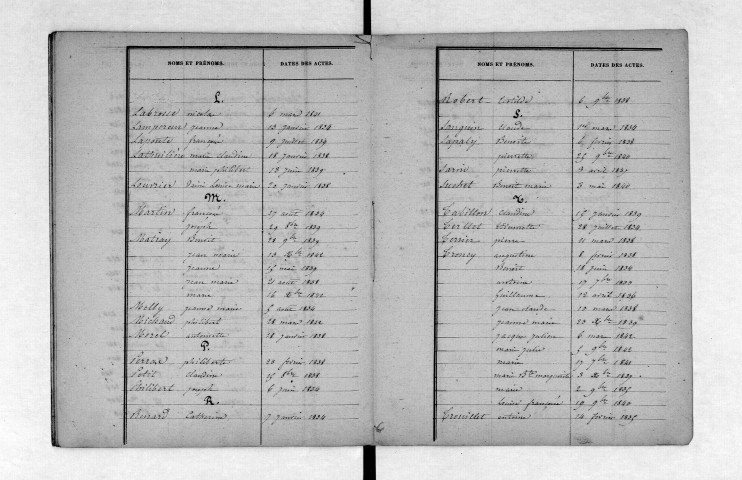 NOMS ET PRÉNOMS. DATES DES ACTES.
L.
Labrosse nicolas 6 mars 1841
Lamporeur jeanne 13 janvier 1834
Laponte françois 9 juillet 1834
marie claudine 18 janvier 1838
marie philibert 13 juin 1839
Louvrier marie 20 janvier 1838
M.
Martin françois 27 août 1834
joseph 29 8bre 1839
Matray Benoit 28 9bre 1839
jean marie 10 Xbre 1842
jeanne 15 mai 1839
jean marie 21 août 1838
marie 16 Xbre 1842
Melly jeanne marie 5 août 1834
Michaud philibert 28 mars 1842
Morel antoinette 28 janvier 1838
P.
Perrax philiberte 20 février 1838
Petit claudine 25 8bre 1838
joseph 6 juin 1834
R.
Renard Catherine 7 janvier 1834
NOMS ET PRÉNOMS. DATES DES ACTES.
Robert 6 9bre 1838
S.
claude 1er mai 1834
Lapaly Benoite 6 février 1838
pierrette 25 9bre 1840
pierrette 3 avril 1837
Benoit marie 3 mai 1840
T.
Tatillon claudine 15 janvier 1839
28 juillet 1834
Terrier pierre 21 mars 1838
Troncy augustine 8 février 1838
Benoit 18 juin 1834
antoine 17 7bre
guillaume 22 avril 1836
jean claude 10 mars 1838
jeanne marie 20 Xbre 1839
jacques julien 6 mars 1842
marie julie 5 9bre 1842
marie 17 7bre 1841
marie Bte marguerite 3 Xbre 1839
marie 2 9bre 1835
françois 19 9bre 1840
Trouillet antoine 14 février 1835